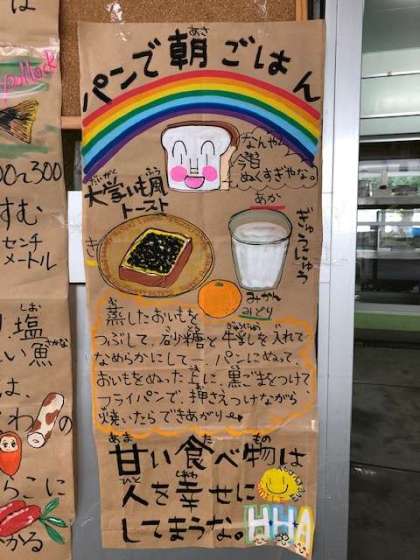 パンで朝ごはん
あさ
なんやと
今習
ぬくすぎやな。
大学いも風
だいがく
トースト
あか
ぎゅうにゅう
き
みかん
みどり
蒸したおいもを
つぶして、砂糖と牛乳を入れて
ぎゅうにゅう
なめらかにして― パンにぬって、
おいもをぬった上に、黒ごまをつけて
フライパンで、押さえつけながら
焼いたらできあがり
あま
た
もの
甘い食べ物は
ひと
しあわ
人を幸せに
してまうな。
HHA
pollock
00~300
すむ
センチ
メートル
しお
塩
い魚
さかな
は、
わ
の
らこに
かる
は